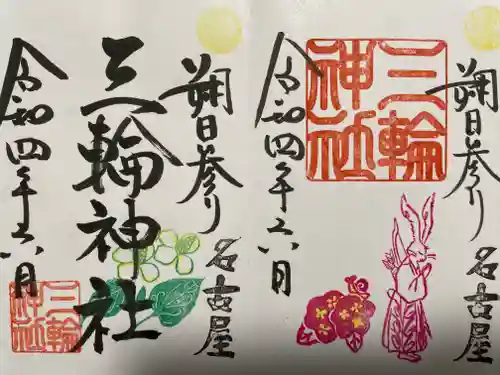 朔日参り
名古屋
三輪神社
令和四年六月
三輪
神社
朔日参り
名古屋
三輪
神社
令和四年六月